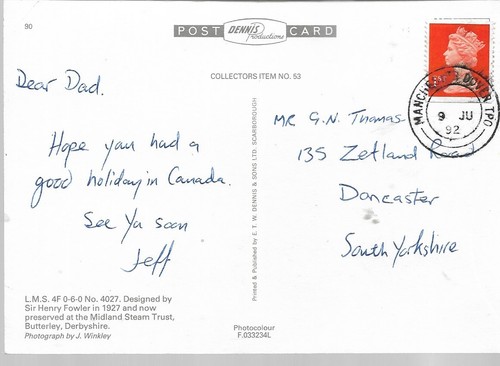 90
POST DENNIS Productions CARD
COLLECTORS ITEM NO. 53
Dear Dad.
Hope you had a
good holiday in Canada.
See Ya soon
Jeff
L.M.S. 4F 0-6-0 No. 4027. Designed by
Sir Henry Fowler in 1927 and now
preserved at the Midland Steam Trust,
Butterley, Derbyshire.
Photograph by J. Winkley
Printed & Published by E. T. W. DENNIS & SONS LTD. SCARBOROUGH
Photocolour
F.033234L
MR G.N. Thomas
135 Zetland Road
Doncaster
South Yorkshire
DOVER TPO
9 JU
92